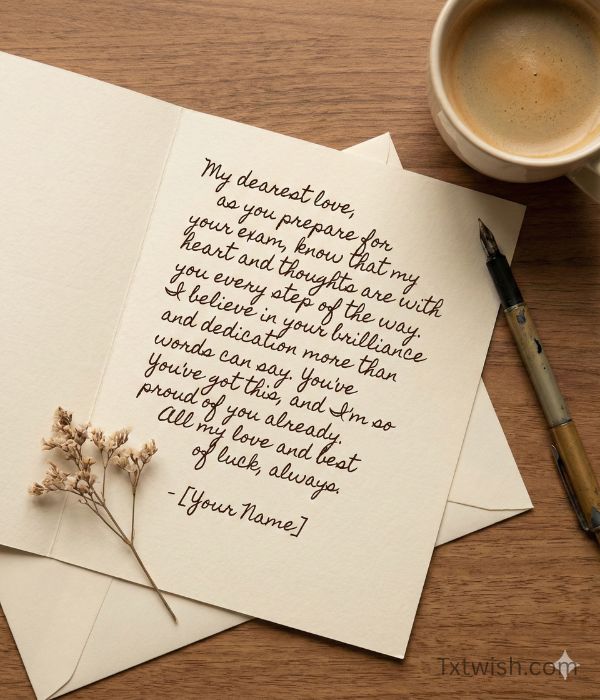 My dearest love,
as you prepare for
your exam, know that my
heart and thoughts are with
you every step of the way.
I believe in your brilliance
and dedication more than
words can say. You've
You've got this, and I'm so
proud of you already.
All my love and best
of luck, always.
- [Your Name]
1xtwish.com